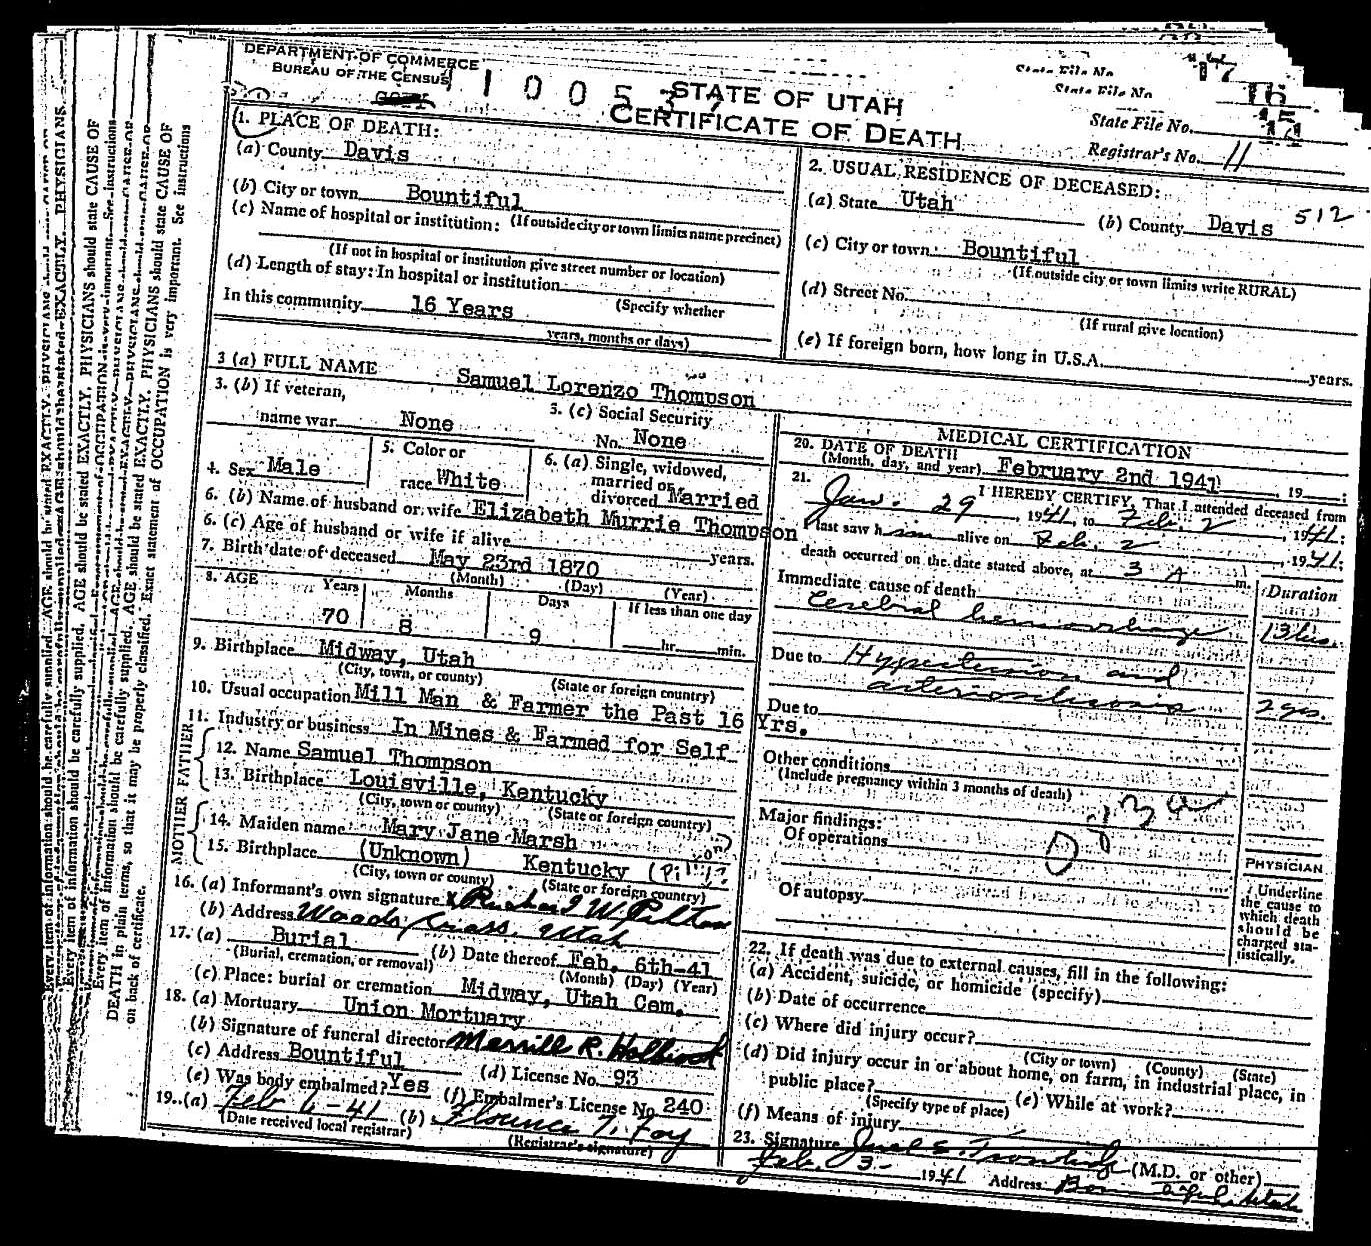 DEPARTMENT OF COMMERCE
BUREAU OF THE CENSUS
STATE OF UTAH
CERTIFICATE OF DEATH
State File No.
State File No.
State File No.
Registrar's No. 11
1. PLACE OF DEATH:
(a) County Davis
(b) City or town Bountiful
(If outside city or town limits name precinct)
(c) Name of hospital or institution:
(If not in hospital or institution give street number or location)
(d) Length of stay: In hospital or institution
(Specify whether
In this community 16 Years
years, months or days)
2. USUAL RESIDENCE OF DECEASED:
512
(a) State Utah (b) County Davis
(c) City or town Bountiful
(If outside city or town limits write RURAL)
(d) Street No.
(If rural give location)
(e) If foreign born, how long in U.S.A. years.
3 (a) FULL NAME Samuel Lorenzo Thompson
3. (b) If veteran,
name war None
3. (c) Social Security
No. None
4. Sex Male
5. Color or
race White
6. (a) Single, widowed,
married or
divorced Married
6. (b) Name of husband or wife Elizabeth Murrie Thompson
6. (c) Age of husband or wife if alive years.
7. Birth date of deceased May 23rd 1870
(Month) (Day) (Year)
8. AGE Years Months Days If less than one day
70 8 9 hr. min.
9. Birthplace Midway, Utah
(City, town, or county) (State or foreign country)
10. Usual occupation Mill Man & Farmer the Past 16 Yrs.
11. Industry or business In Mines & Farmed for Self
FATHER
12. Name Samuel Thompson
13. Birthplace Louisville, Kentucky
(City, town or county) (State or foreign country)
MOTHER
14. Maiden name Mary Jane Marsh
15. Birthplace (Unknown) Kentucky
(City, town or county) (State or foreign country)
16. (a) Informant's own signature
(b) Address Woods Cross, Utah
17. (a) Burial (b) Date thereof Feb. 6th-41
(Burial, cremation, or removal) (Month) (Day) (Year)
(c) Place: burial or cremation Midway, Utah Cem.
18. (a) Mortuary Union Mortuary
(b) Signature of funeral director Merrill R. Holbrook
(c) Address Bountiful (d) License No. 93
(e) Was body embalmed? Yes (f) Embalmer's License No. 240
19. (a) Feb 6-41 (b) Florence T. Foy
(Date received local registrar) (Registrar's signature)
MEDICAL CERTIFICATION
20. DATE OF DEATH
(Month, day, and year) February 2nd 1941, 19
21. I HEREBY CERTIFY, That I attended deceased from
Jan. 29 1941, to Feb. 2, 1941:
I last saw him alive on Feb. 2, 1941:
death occurred on the date stated above, at 3 A m.
Immediate cause of death Duration
Cerebral hemorrhage
Due to Hypertension and
arteriosclerosis 2 yrs.
Due to
Other conditions
(Include pregnancy within 3 months of death)
Major findings:
Of operations
Of autopsy
PHYSICIAN
Underline
the cause to
which death
should be
charged sta-
tistically.
22. If death was due to external causes, fill in the following:
(a) Accident, suicide, or homicide (specify)
(b) Date of occurrence
(c) Where did injury occur?
(City or town) (County) (State)
(d) Did injury occur in or about home, on farm, in industrial place, in
public place? (e) While at work?
(Specify type of place)
(f) Means of injury
23. Signature (M.D. or other)
Feb. 3- 1941 Address Bountiful, Utah
Every item of information should be carefully supplied. AGE should be stated EXACTLY. PHYSICIANS should state CAUSE OF
DEATH in plain terms, so that it may be properly classified. Exact statement of OCCUPATION is very important. See instructions
on back of certificate.